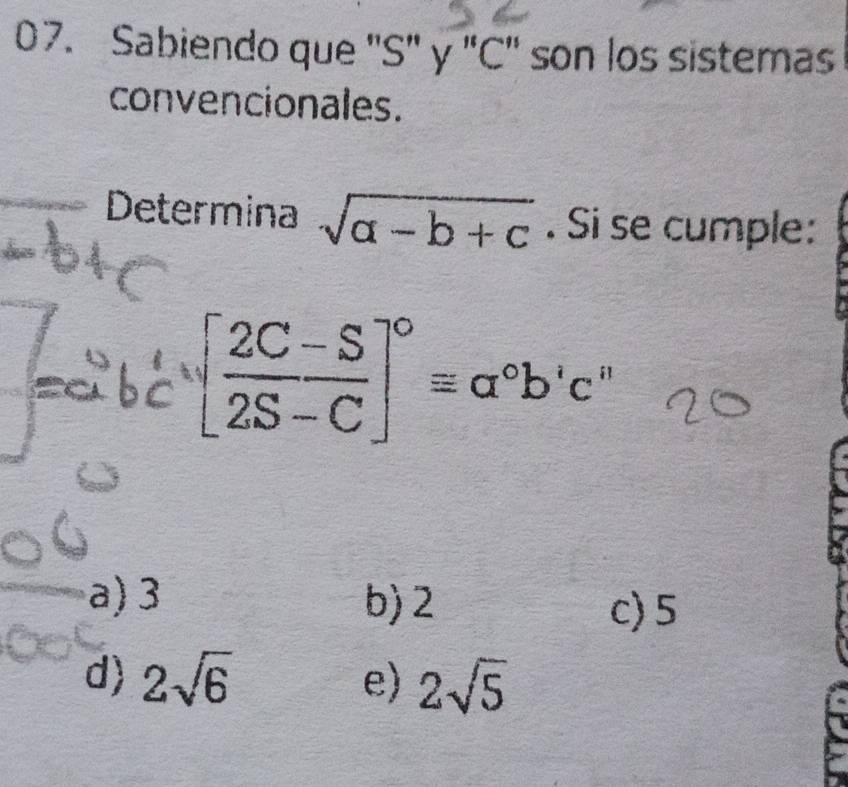 07. Sabiendo que "S" y "C" son los sistemas
convencionales.
Determina √(a - b + c) . Si se cumple:
- b + c
] = a° b' c" [(2C - S)/(2S - C)]° ≡ a°b'c" 20
a) 3 b) 2 c) 5
d) 2√6 e) 2√5